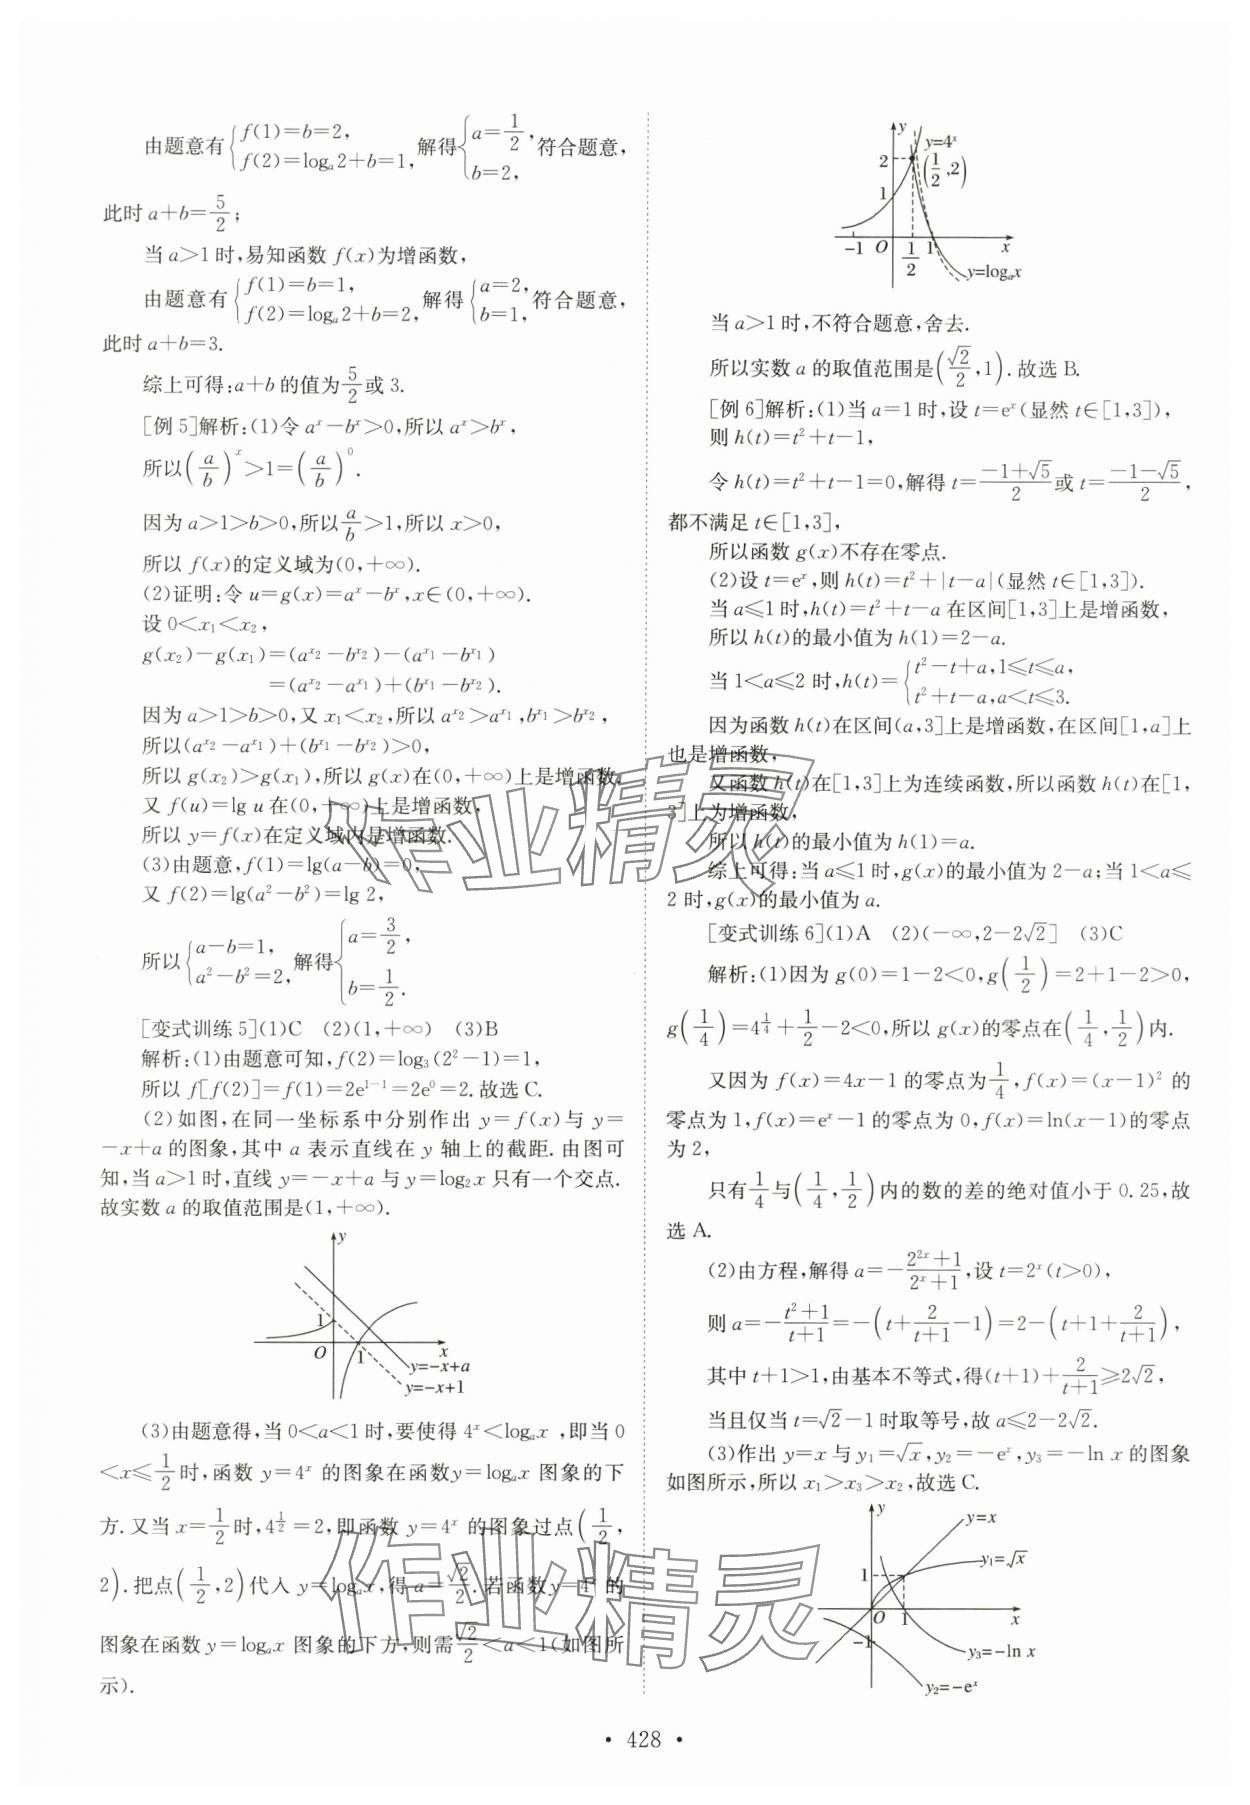 由题意有{f(1)=b=2, f(2)=logₐ2+b=1, 解得{a=1/2, b=2, 符合题意,
此时 a+b=5/2;
当 a>1 时,易知函数 f(x)为增函数,
由题意有{f(1)=b=1, f(2)=logₐ2+b=2, 解得{a=2, b=1, 符合题意,
此时 a+b=3.
综上可得:a+b 的值为5/2或 3.
[例 5]解析:(1)令 aˣ-bˣ>0,所以 aˣ>bˣ,
所以(a/b)ˣ>1=(a/b)⁰.
因为 a>1>b>0,所以a/b>1,所以 x>0,
所以 f(x)的定义域为(0,+∞).
(2)证明:令 u=g(x)=aˣ-bˣ,x∈(0,+∞).
设 0<x₁<x₂,
g(x₂)-g(x₁)=(a^x₂-b^x₂)-(a^x₁-b^x₁)
=(a^x₂-a^x₁)+(b^x₁-b^x₂).
因为 a>1>b>0,又 x₁<x₂,所以 a^x₂>a^x₁,b^x₁>b^x₂,
所以(a^x₂-a^x₁)+(b^x₁-b^x₂)>0,
所以 g(x₂)>g(x₁),所以 g(x)在(0,+∞)上是增函数.
又 f(u)=lg u 在(0,+∞)上是增函数,
所以 y=f(x)在定义域内是增函数.
(3)由题意,f(1)=lg(a-b)=0,
又 f(2)=lg(a²-b²)=lg 2,
所以{a-b=1, a²-b²=2, 解得{a=3/2, b=1/2.
[变式训练 5](1)C (2)(1,+∞) (3)B
解析:(1)由题意可知,f(2)=log₃(2²-1)=1,
所以 f[f(2)]=f(1)=2e¹⁻¹=2e⁰=2.故选 C.
(2)如图,在同一坐标系中分别作出 y=f(x)与 y=
-x+a 的图象,其中 a 表示直线在 y 轴上的截距.由图可
知,当 a>1 时,直线 y=-x+a 与 y=log₂x 只有一个交点.
故实数 a 的取值范围是(1,+∞).
y
1
O 1 x
y=-x+a
y=-x+1
(3)由题意得,当 0<a<1 时,要使得 4ˣ<logₐx ,即当 0
<x≤1/2时,函数 y=4ˣ 的图象在函数y=logₐx 图象的下
方.又当 x=1/2时,4^(1/2)=2,即函数 y=4ˣ 的图象过点(1/2,
2).把点(1/2,2)代入 y=logₐx,得 a=√2/2.若函数 y=4ˣ 的
图象在函数 y=logₐx 图象的下方,则需√2/2<a<1(如图所
示).
y
y=4ˣ
2
(1/2,2)
1
-1 O 1/2 1 x
y=logₐx
当 a>1 时,不符合题意,舍去.
所以实数 a 的取值范围是(√2/2,1).故选 B.
[例 6]解析:(1)当 a=1 时,设 t=eˣ(显然 t∈[1,3]),
则 h(t)=t²+t-1,
令 h(t)=t²+t-1=0,解得 t=(-1+√5)/2或 t=(-1-√5)/2,
都不满足 t∈[1,3],
所以函数 g(x)不存在零点.
(2)设 t=eˣ,则 h(t)=t²+|t-a|(显然 t∈[1,3]).
当 a≤1 时,h(t)=t²+t-a 在区间[1,3]上是增函数,
所以 h(t)的最小值为 h(1)=2-a.
当 1<a≤2 时,h(t)={t²-t+a,1≤t≤a, t²+t-a,a<t≤3.
因为函数 h(t)在区间(a,3]上是增函数,在区间[1,a]上
也是增函数,
又函数 h(t)在[1,3]上为连续函数,所以函数 h(t)在[1,
3]上为增函数,
所以 h(t)的最小值为 h(1)=a.
综上可得:当 a≤1 时,g(x)的最小值为 2-a;当 1<a≤
2 时,g(x)的最小值为 a.
[变式训练 6](1)A (2)(-∞,2-2√2] (3)C
解析:(1)因为 g(0)=1-2<0,g(1/2)=2+1-2>0,
g(1/4)=4^(1/4)+1/2-2<0,所以 g(x)的零点在(1/4,1/2)内.
又因为 f(x)=4x-1 的零点为1/4,f(x)=(x-1)² 的
零点为 1,f(x)=eˣ-1 的零点为 0,f(x)=ln(x-1)的零点
为 2,
只有1/4与(1/4,1/2)内的数的差的绝对值小于 0.25,故
选 A.
(2)由方程,解得 a=-(2²ˣ+1)/(2ˣ+1),设 t=2ˣ(t>0),
则 a=-(t²+1)/(t+1)=-(t+2/(t+1)-1)=2-(t+1+2/(t+1)),
其中 t+1>1,由基本不等式,得(t+1)+2/(t+1)≥2√2,
当且仅当 t=√2-1 时取等号,故 a≤2-2√2.
(3)作出 y=x 与 y₁=√x,y₂=-eˣ,y₃=-ln x 的图象
如图所示,所以 x₁>x₃>x₂,故选 C.
y
y=x
y₁=√x
1
O 1 x
-1
y₃=-ln x
y₂=-eˣ
作业精灵
作业精灵
• 428 •